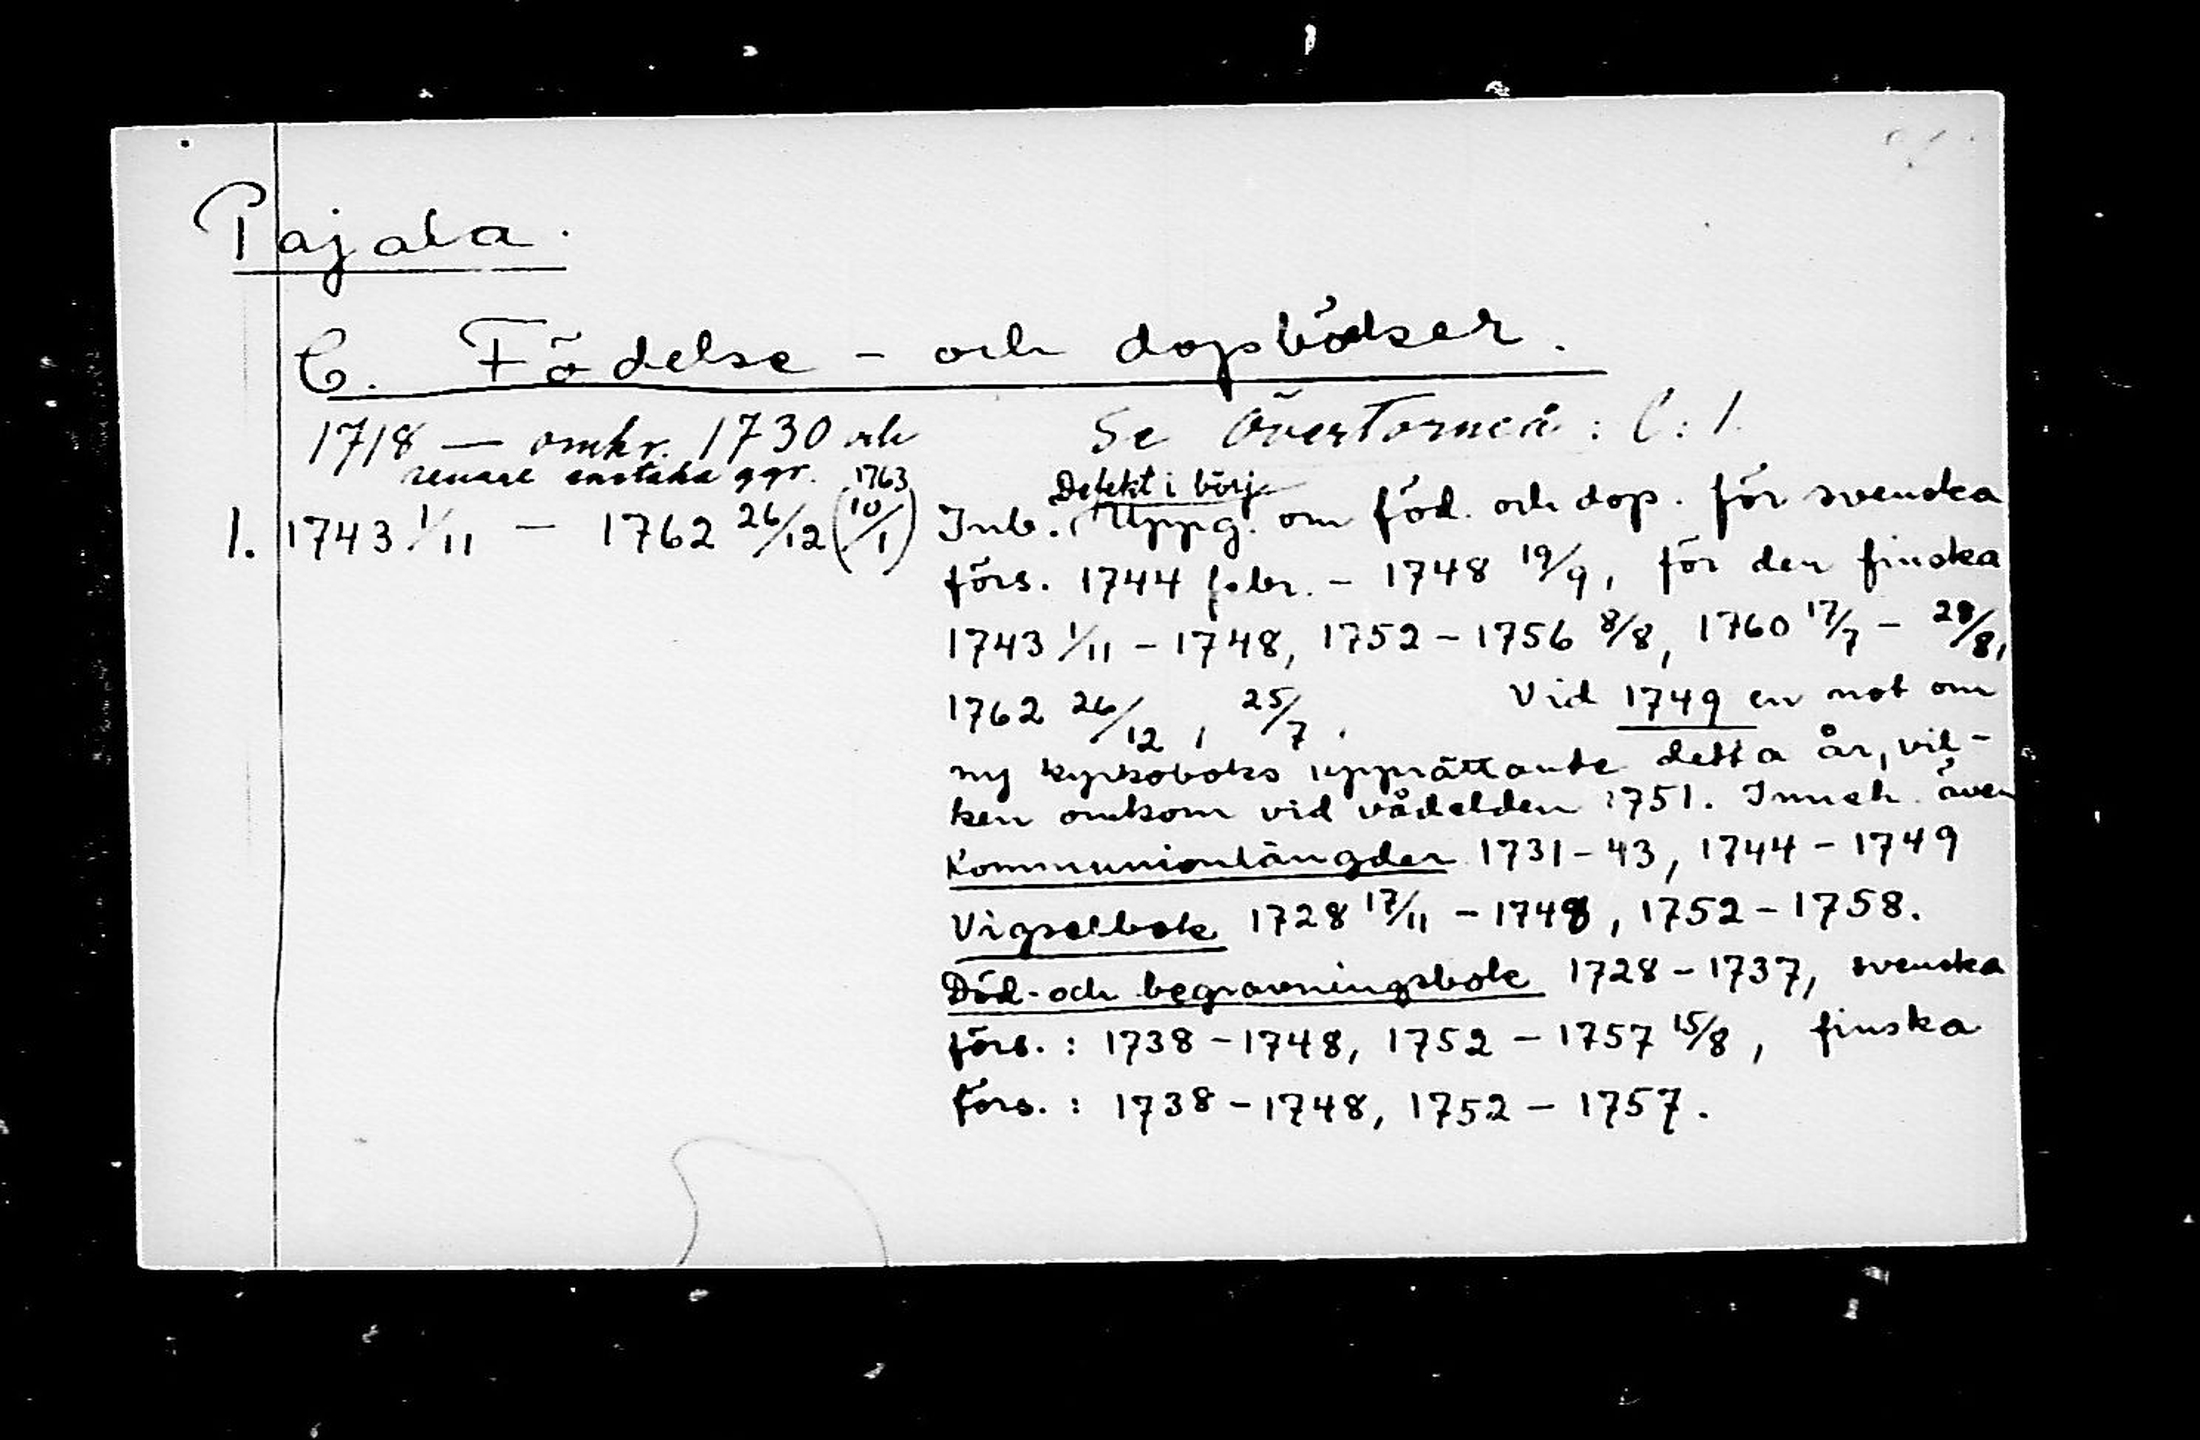 Pajala.
C. Födelse- och dopböcker.
1718 — omkr. 1730 och Se Övertorneå: C: 1.
senare enstaka ggr.
1. 1743 1/11 – 1762 26/12 (1763 10/1) Inb. Defekt i börj. Uppg. om föd. och dop. för svenska
förs. 1744 febr. – 1748 19/9, för den finska
1743 1/11 – 1748, 1752 – 1756 8/8, 1760 17/7 – 28/8,
1762 26/12, 25/7. Vid 1749 en not om
ny kyrkoboks upprättande detta år, vil-
ken omkom vid vådelden 1751. Inneh. även
Kommunionlängder 1731-43, 1744 – 1749
Vigselbok 1728 17/11 – 1748, 1752 – 1758.
Död- och begravningsbok 1728 – 1737, svenska
förs.: 1738 – 1748, 1752 – 1757 15/8, finska
förs.: 1738 – 1748, 1752 – 1757.